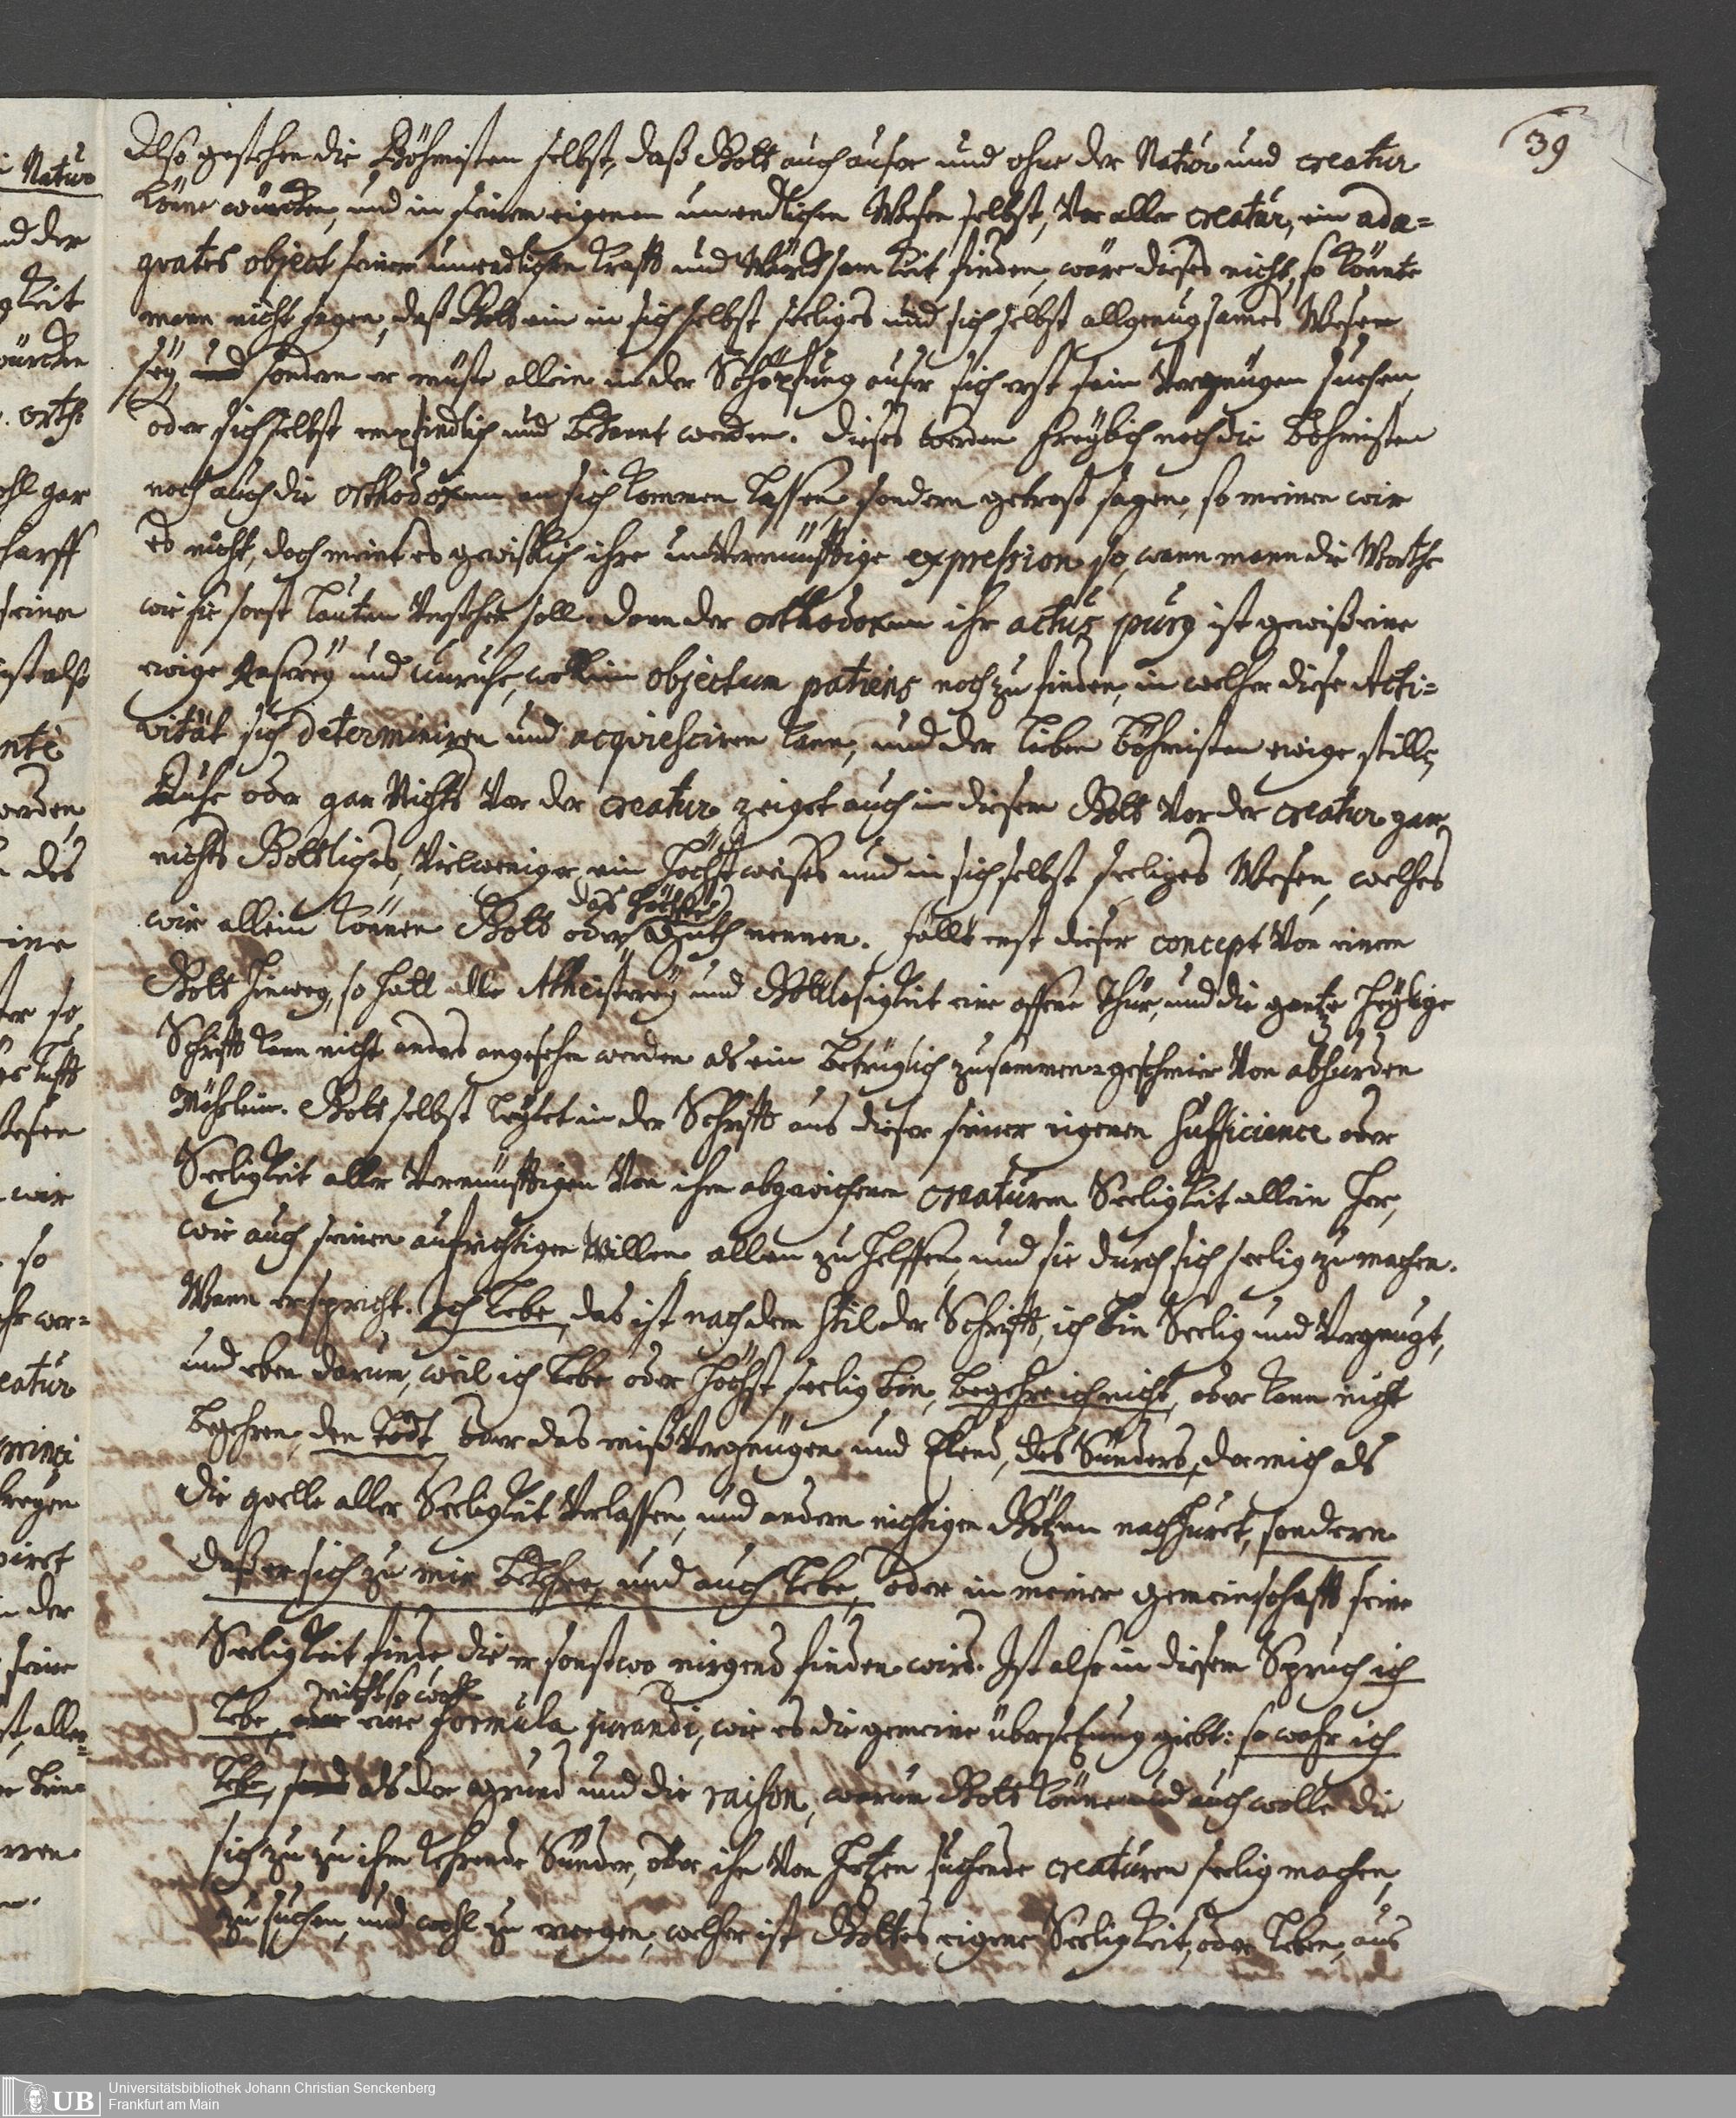 39
Also gestehen die Böhmisten selbst, daß Gott auch auser und ohne der Natur und creatur
könne würcken, und in seinem eigenen unendlichen Wesen selbst, Vor aller creatur, ein adæ=
quates object seiner unendlichen krafft und Würcksamkeit finden, wäre dieses nicht, so könnte
mann nicht sagen, daß Gott ein in sich selbst seeliges und sich selbst allgenugsames Wesen
sey, und sondern er müste allein in der Schöpfung auser sich erst sein Vergnügen suchen,
oder sich selbst empfindlich und bekannt werden. Dieses werden freylich noch die Böhmisten
noch auch die orthodoxen an sich kommen lassen, sondern getrost sagen, so meinen wir
es nicht, doch meint es gewißlich ihre unVernünfftige expression so, wann mann die Worthe
wie sie sonst lauten Verstehen soll. Denn der orthodoxen ihr actus purus ist gewiß eine
ewige Raserey und Unruhe, wo kein objectum patiens noch zu finden, in welcher diese Acti=
vität sich determiniren und acquiesciren kann, und der lieben Böhmisten ewige stille,
Ruhe oder gar Nichts Vor der creatur zeiget auch in diesem Gott Vor der creatur gar
nichts Göttliches, Vielweniger ein höchst weises und in sich selbst seeliges Wesen, welches
das höchste
wir allein können Gott oder Guth nennen. fällt erst dieser concept Von einem
Gott hinweg, so hatt alle Atheisterey und Gottlosigkeit eine offene Thür, und die gantze heylige
Schrifft kann nicht anders angesehen werden als ein betrüglich zusammen-geschmier Von absurden
Mährlein. Gott selbst leytet in der Schrifft aus dieser seiner eigenen sufficience oder
Seeligkeit aller Vernünfftigen Von ihm abgewichenen creaturen Seeligkeit allein her,
wie auch seinen aufrichtigen Willen allen zu helffen, und sie durch sich seelig zu machen.
Wann er spricht. Ich lebe, das ist nach dem stil der Schrifft, ich bin Seelig und Vergnügt,
und eben darum, weil ich lebe oder höchst seelig bin, begehre ich nicht, oder kann nicht
begehren, den Todt, oder das mißVergnügen und Elend, des Sünders, der mich als
die qvelle aller Seeligkeit Verlassen, und andern nichtigen Götzen nachhuret, sondern
daß er sich zu mir bekehre, und auch lebe, oder in meiner gemeinschafft seine
Seeligkeit finde, die er sonstwo nirgend finden wird. Ist also in diesem Spruch ich
nicht so wohl
lebe, eine formula jurandi, wie es die gemeine übersetzung giebt: so wahr ich
lebe, als der grund und die raison, warum Gott könne und auch wolle die
sich zu zu ihm kehrende Sünder, oder ihn Von Hertzen suchende creaturen seelig machen,
zu suchen, und wohl zu erwegen, welcher ist Gottes eigene Seeligkeit, oder leben, aus
Universitätsbibliothek Johann Christian Senckenberg
Frankfurt am Main
UB